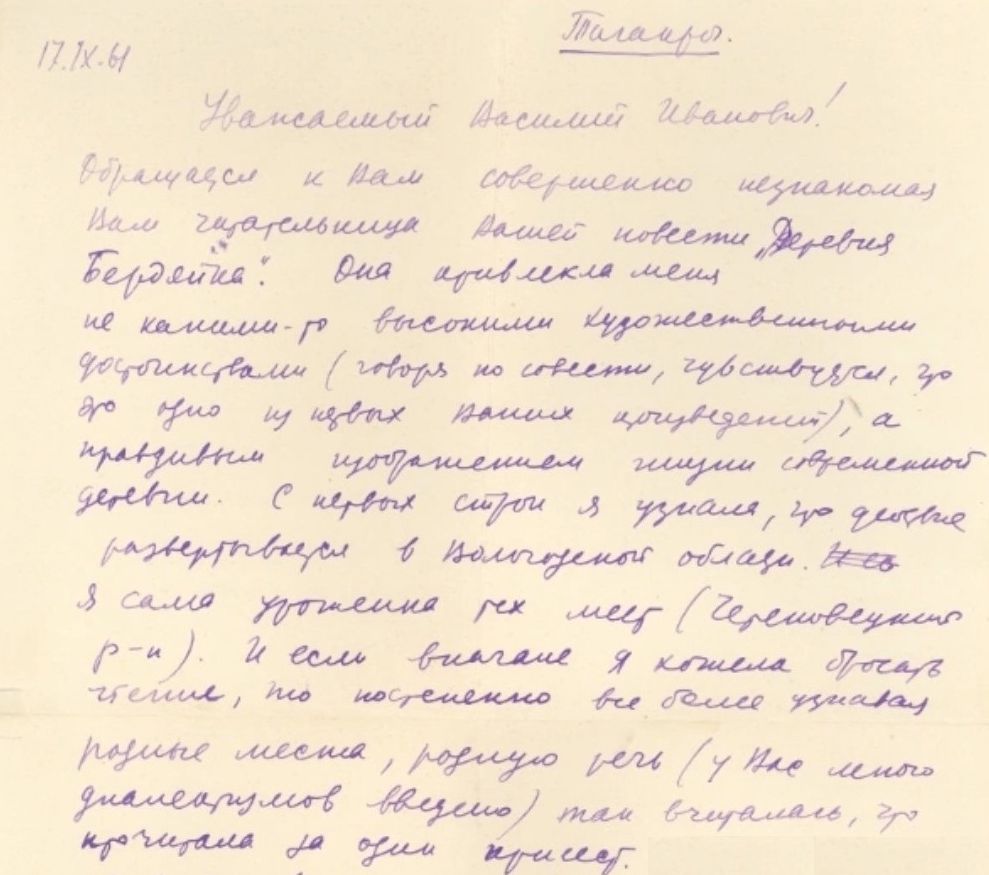 Таганрог.
17.IX.61
Уважаемый Василий Иванович!
Обращается к Вам совершенно незнакомая
Вам читательница Вашей повести „Деревня
Бердяйка". Она привлекла меня
не какими-то высокими художественными
достоинствами (говоря по совести, чувствуется, что
это одно из первых Ваших произведений), а
правдивым изображением жизни современной
деревни. С первых строк я узнала, что действие
развертывается в Вологодской области.
Я сама уроженка тех мест (Череповецкий
р-н). И если вначале я хотела бросать
чтение, то постепенно все более узнавая
родные места, родную речь (у Вас много
диалектизмов введено) так вчиталась, что
прочитала за один присест.